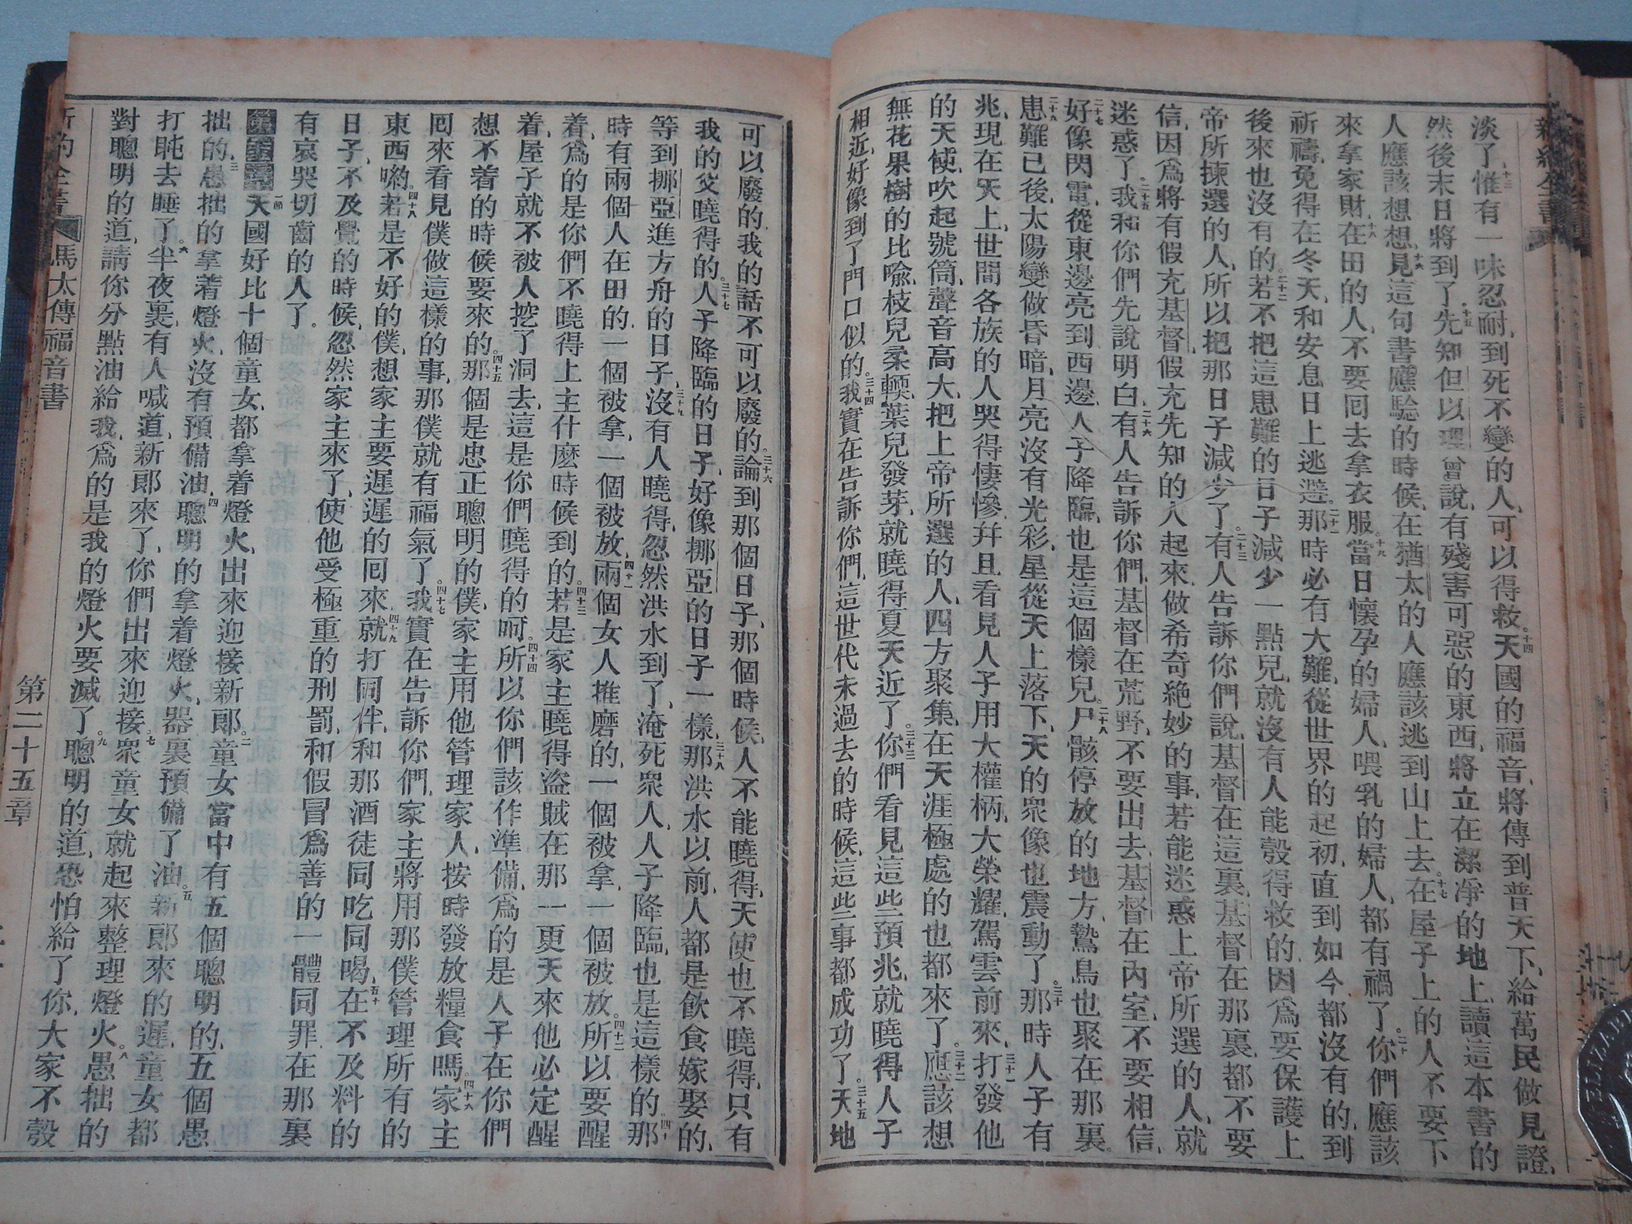 淡了惟有一味忍耐到死不變的人可以得救十四天國的福音將傳到普天下給萬民做見證
然後末日將到了十五先知但以理曾說有殘害可惡的東西將立在潔凈的地上讀這本書的
人應該想想十六見這句書應驗的時候在猶太的人應該逃到山上去十七在屋子上的人不要下
來拿家財十八在田的人不要囘去拿衣服十九當日懷孕的婦人喂乳的婦人都有禍了二十你們應該
祈禱免得在冬天和安息日上逃避二十一那時必有大難從世界的起初直到如今都沒有的到
後來也沒有的二十二若不把這患難的日子減少一點兒就沒有人能彀得救的因爲要保護上
帝所揀選的人所以把那日子減少了二十三有人告訴你們說基督在這裏基督在那裏都不要
信二十四因爲將有假充基督假充先知的人起來做希奇絶妙的事若能迷惑上帝所選的人就
迷惑了二十五我和你們先說明白二十六有人告訴你們基督在荒野不要出去基督在內室不要相信
二十七好像閃電從東邊亮到西邊人子降臨也是這個樣兒二十八尸骸停放的地方鷙鳥也聚在那裏
二十九患難已後太陽變做昏暗月亮沒有光彩星從天上落下天的衆像也震動了三十那時人子有
兆現在天上世間各族的人哭得悽慘幷且看見人子用大權柄大榮耀駕雲前來三十一打發他
的天使吹起號筒聲音高大把上帝所選的人四方聚集在天涯極處的也都來了三十二應該想
無花果樹的比喩枝兒柔輭葉兒發芽就曉得夏天近了三十三你們看見這些預兆就曉得人子
相近好像到了門口似的三十四我實在告訴你們這世代未過去的時候這些事都成功了三十五天地
可以廢的我的話不可以廢的三十六論到那個日子那個時候人不能曉得天使也不曉得只有
我的父曉得的三十七人子降臨的日子好像挪亞的日子一樣三十八那洪水以前人都是飮食嫁娶的
等到挪亞進方舟的日子三十九沒有人曉得忽然洪水到了淹死衆人人子降臨也是這樣的四十那
時有兩個人在田的一個被拿一個被放四十一兩個女人推磨的一個被拿一個被放四十二所以要醒
着爲的是你們不曉得上主什麽時候到的四十三若是家主曉得盜賊在那一更天來他必定醒
着屋子就不被人挖了洞去這是你們曉得的呵四十四所以你們該作準備爲的是人子在你們
想不着的時候要來的四十五那個是忠正聰明的僕家主用他管理家人按時發放糧食嗎四十六家主
囘來看見僕做這樣的事那僕就有福氣了四十七我實在告訴你們家主將用那僕管理所有的
東西喲四十八若是不好的僕想家主要遲遲的囘來四十九就打同伴和那酒徒同吃同喝五十在不及料的
日子不及覺的時候忽然家主來了使他受極重的刑罰和假冒爲善的一體同罪在那裏
有哀哭切齒的人了
一節天國好比十個童女都拿着燈火出來迎接新郎二童女當中有五個聰明的五個愚
拙的三愚拙的拿着燈火沒有預備油四聰明的拿着燈火器裏預備了油五新郎來的遲童女都
打盹去睡了六半夜裏有人喊道新郎來了你們出來迎接七衆童女就起來整理燈火八愚拙的
對聰明的道請你分點油給我爲的是我的燈火要滅了九聰明的道恐怕給了你大家不彀
新約全書 馬太傳福音書 第二十五章